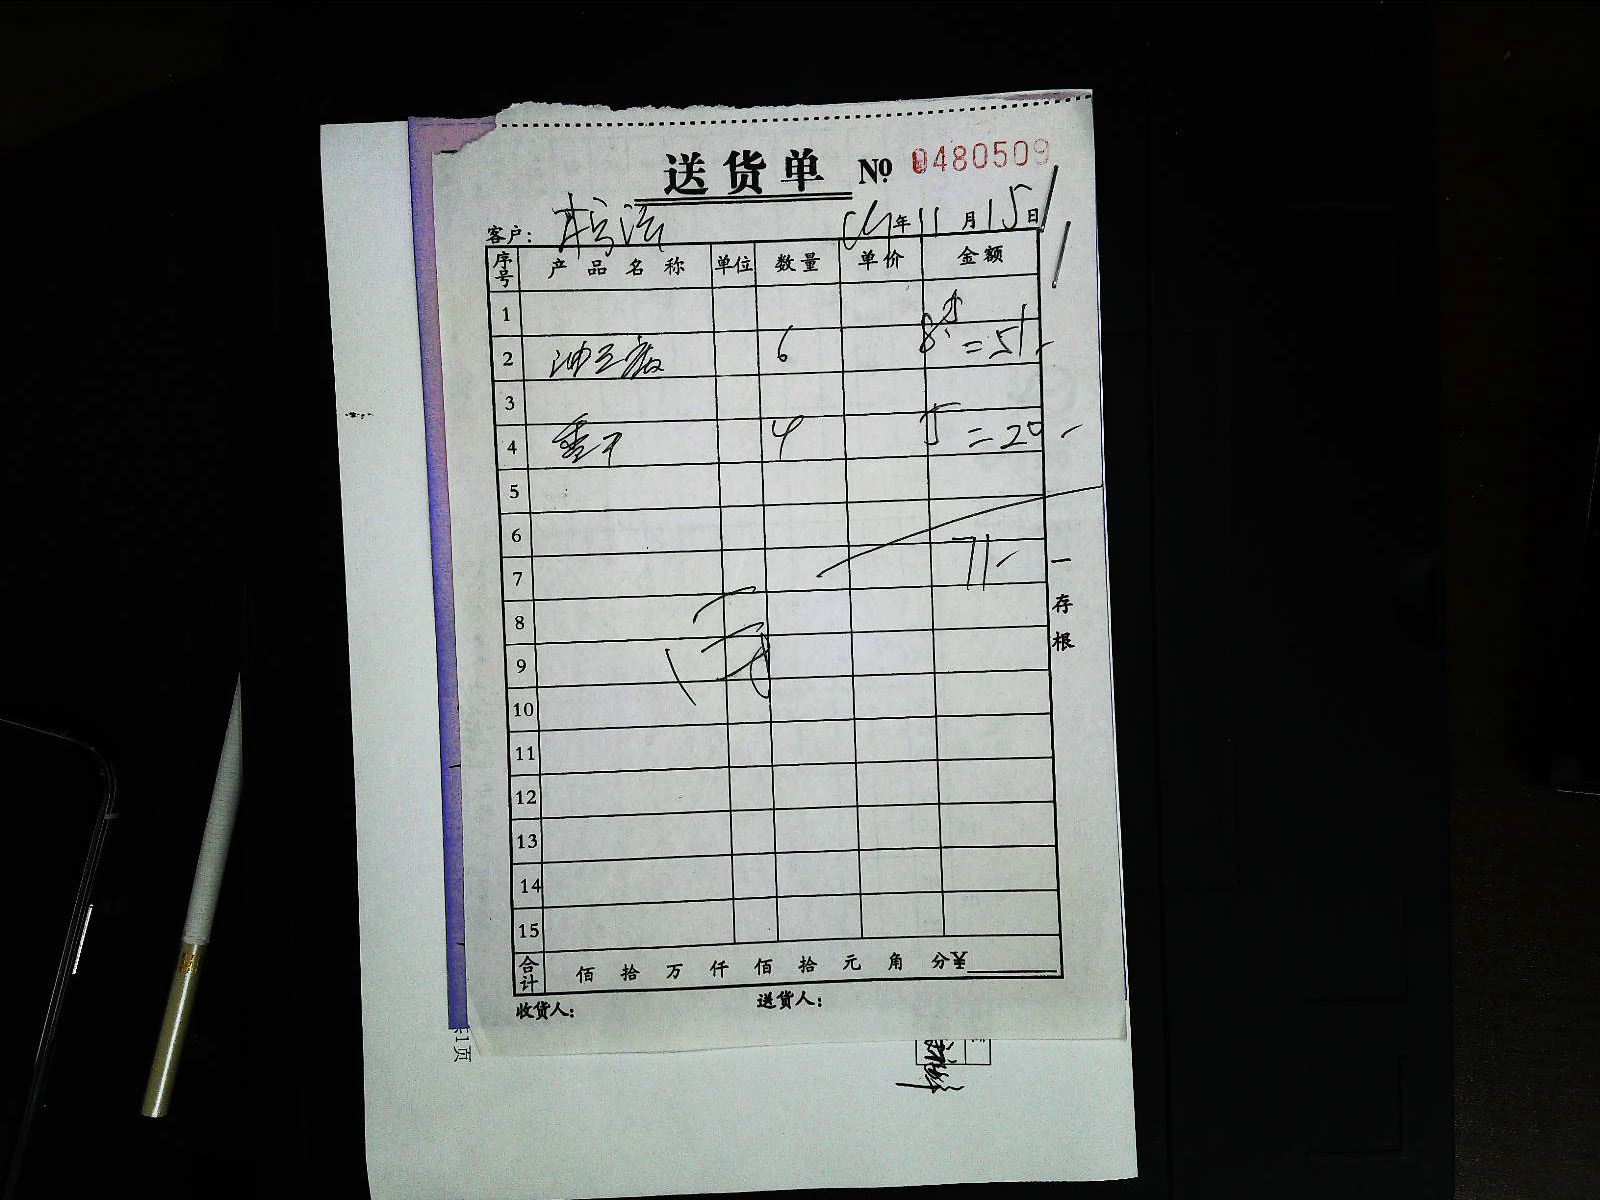 送货单 №0480509
客户: 年11月15日
序号 产品名称 单位 数量 单价 金额
1
2 油豆腐 6 8.5=51-
3
4 香干 4 5=20-
5
6
7 71-
8
9
10
11
12
13
14
15
合计 佰 拾 万 仟 佰 拾 元 角 分¥
收货人: 送货人:
一存根
1页